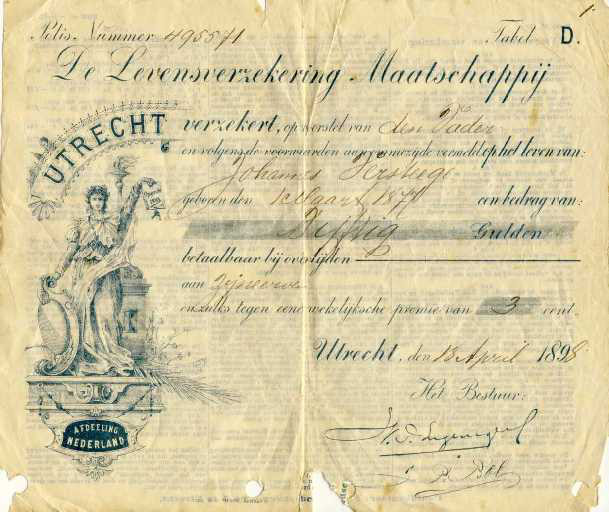 Polis Nummer 495571 Tabel D.
De Levensverzekering Maatschappij
UTRECHT
verzekert, op voorstel van den Vader
en volgens de voorwaarden aan ommezijde vermeld op het leven van:
Johannes
geboren den Maart een bedrag van:
Vijftig Gulden
betaalbaar bij overlijden
aan
en zulks tegen eene wekelijksche premie van 3 cent.
Utrecht, den 13 April 1898
Het Bestuur:
AFDEELING
NEDERLAND